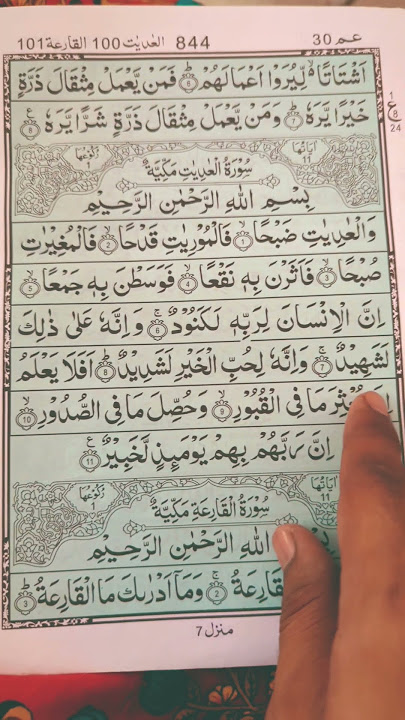 عـم 30 844 العٰديٰت 100 القارعة 101
اَشْتَاتًا ۙ لِّيُرَوْا اَعْمَالَهُمْ ؕ‏ ﴿6﴾ فَمَنْ يَّعْمَلْ مِثْقَالَ ذَرَّةٍ
خَيْرًا يَّرَهٗ ؕ‏ ﴿7﴾ وَمَنْ يَّعْمَلْ مِثْقَالَ ذَرَّةٍ شَرًّا يَّرَهٗ ﴿8﴾
ع 1 8 24
اٰيَاتُهَا 11 سُوْرَةُ الْعٰدِيٰتِ مَكِّيَّةٌ رُكُوْعُهَا 1
بِسْمِ اللّٰهِ الرَّحْمٰنِ الرَّحِيْمِ
وَالْعٰدِيٰتِ ضَبْحًا ۙ‏ ﴿1﴾ فَالْمُوْرِيٰتِ قَدْحًا ۙ‏ ﴿2﴾ فَالْمُغِيْرٰتِ
صُبْحًا ۙ‏ ﴿3﴾ فَاَثَرْنَ بِهٖ نَقْعًا ۙ‏ ﴿4﴾ فَوَسَطْنَ بِهٖ جَمْعًا ۙ‏ ﴿5﴾
اِنَّ الْاِنْسَانَ لِرَبِّهٖ لَكَنُوْدٌ ۚ‏ ﴿6﴾ وَاِنَّهٗ عَلٰى ذٰلِكَ
لَشَهِيْدٌ ۚ‏ ﴿7﴾ وَاِنَّهٗ لِحُبِّ الْخَيْرِ لَشَدِيْدٌ ؕ‏ ﴿8﴾ اَفَلَا يَعْلَمُ
مَا فِى الْقُبُوْرِ ۙ‏ ﴿9﴾ وَحُصِّلَ مَا فِى الصُّدُوْرِ ۙ‏ ﴿10﴾
اِنَّ رَبَّهُمْ بِهِمْ يَوْمَئِذٍ لَّخَبِيْرٌ ﴿11﴾ ع
اٰيَاتُهَا 11 سُوْرَةُ الْقَارِعَةِ مَكِّيَّةٌ رُكُوْعُهَا 1
اللّٰهِ الرَّحْمٰنِ الرَّحِيْمِ
﴿2﴾ وَمَاۤ اَدْرٰىكَ مَا الْقَارِعَةُ ؕ‏ ﴿3﴾
منزل 7